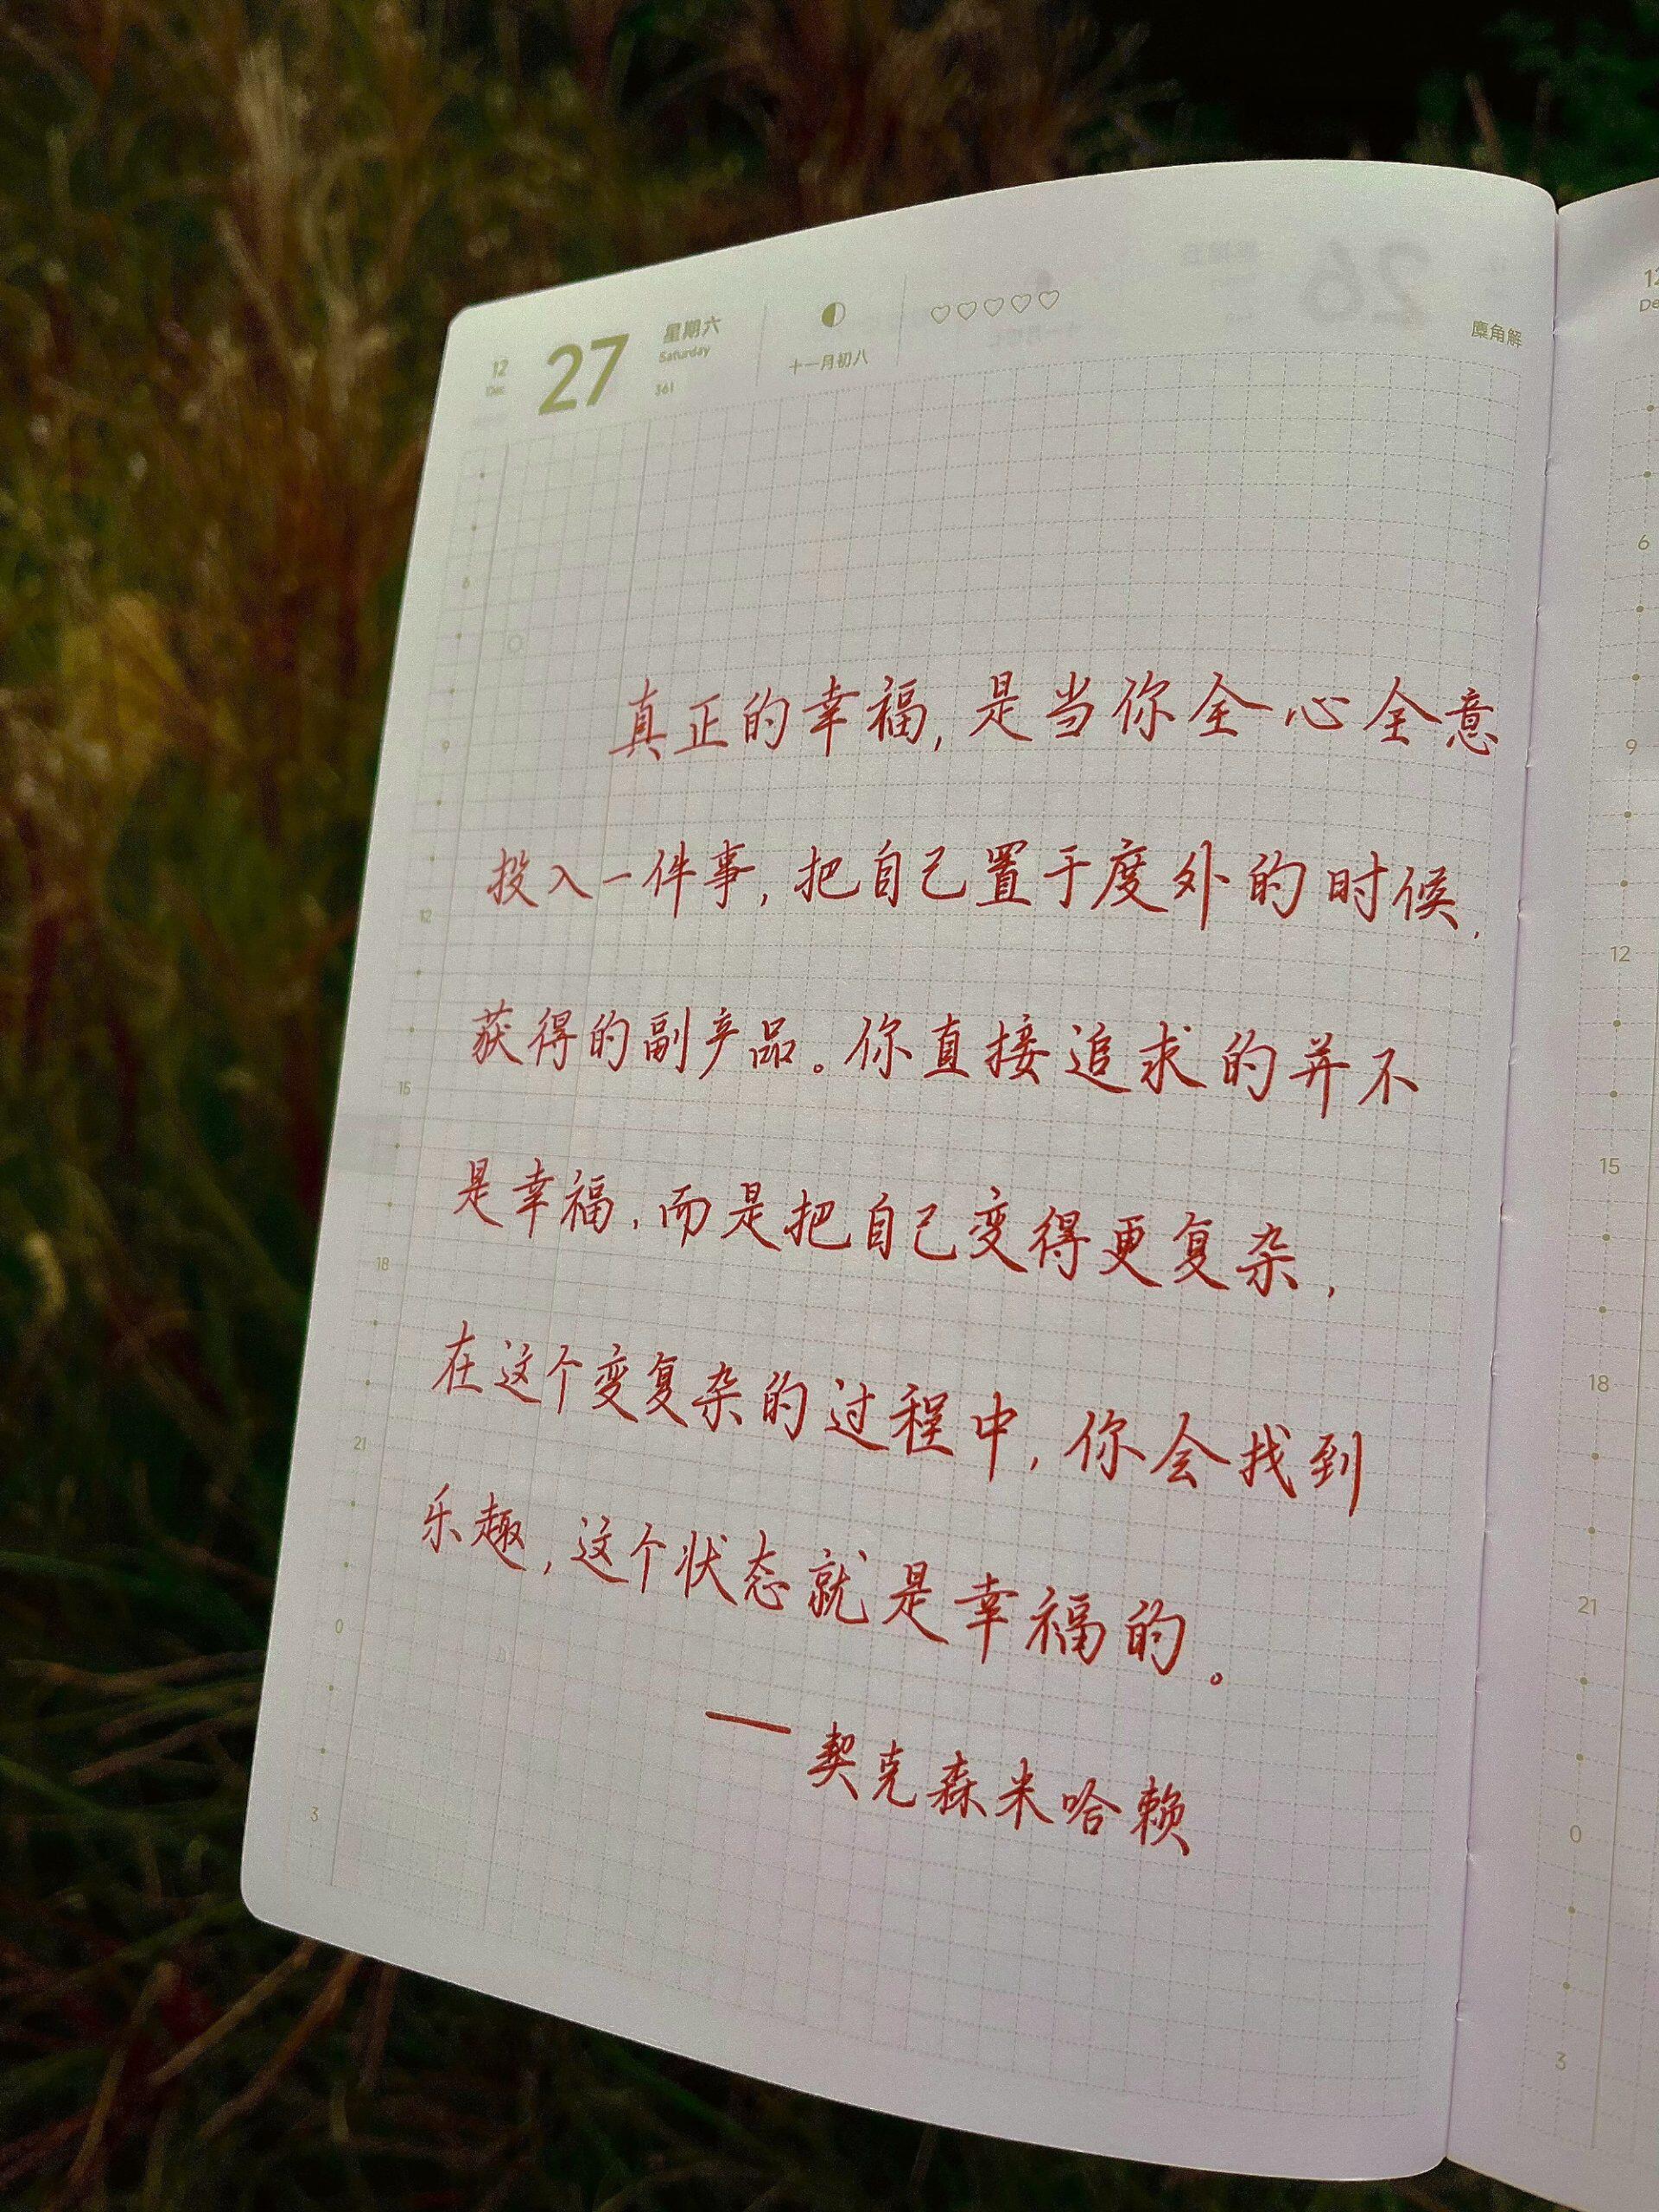 12 Dec 27 星期六 Saturday 361
十一月初八
麋角解
真正的幸福,是当你全心全意
投入一件事,把自己置于度外的时候,
获得的副产品。你直接追求的并不
是幸福,而是把自己变得更复杂,
在这个变复杂的过程中,你会找到
乐趣,这个状态就是幸福的。
——契克森米哈赖
6
9
12
15
18
21
0
3
12
6
9
12
15
18
21
0
3